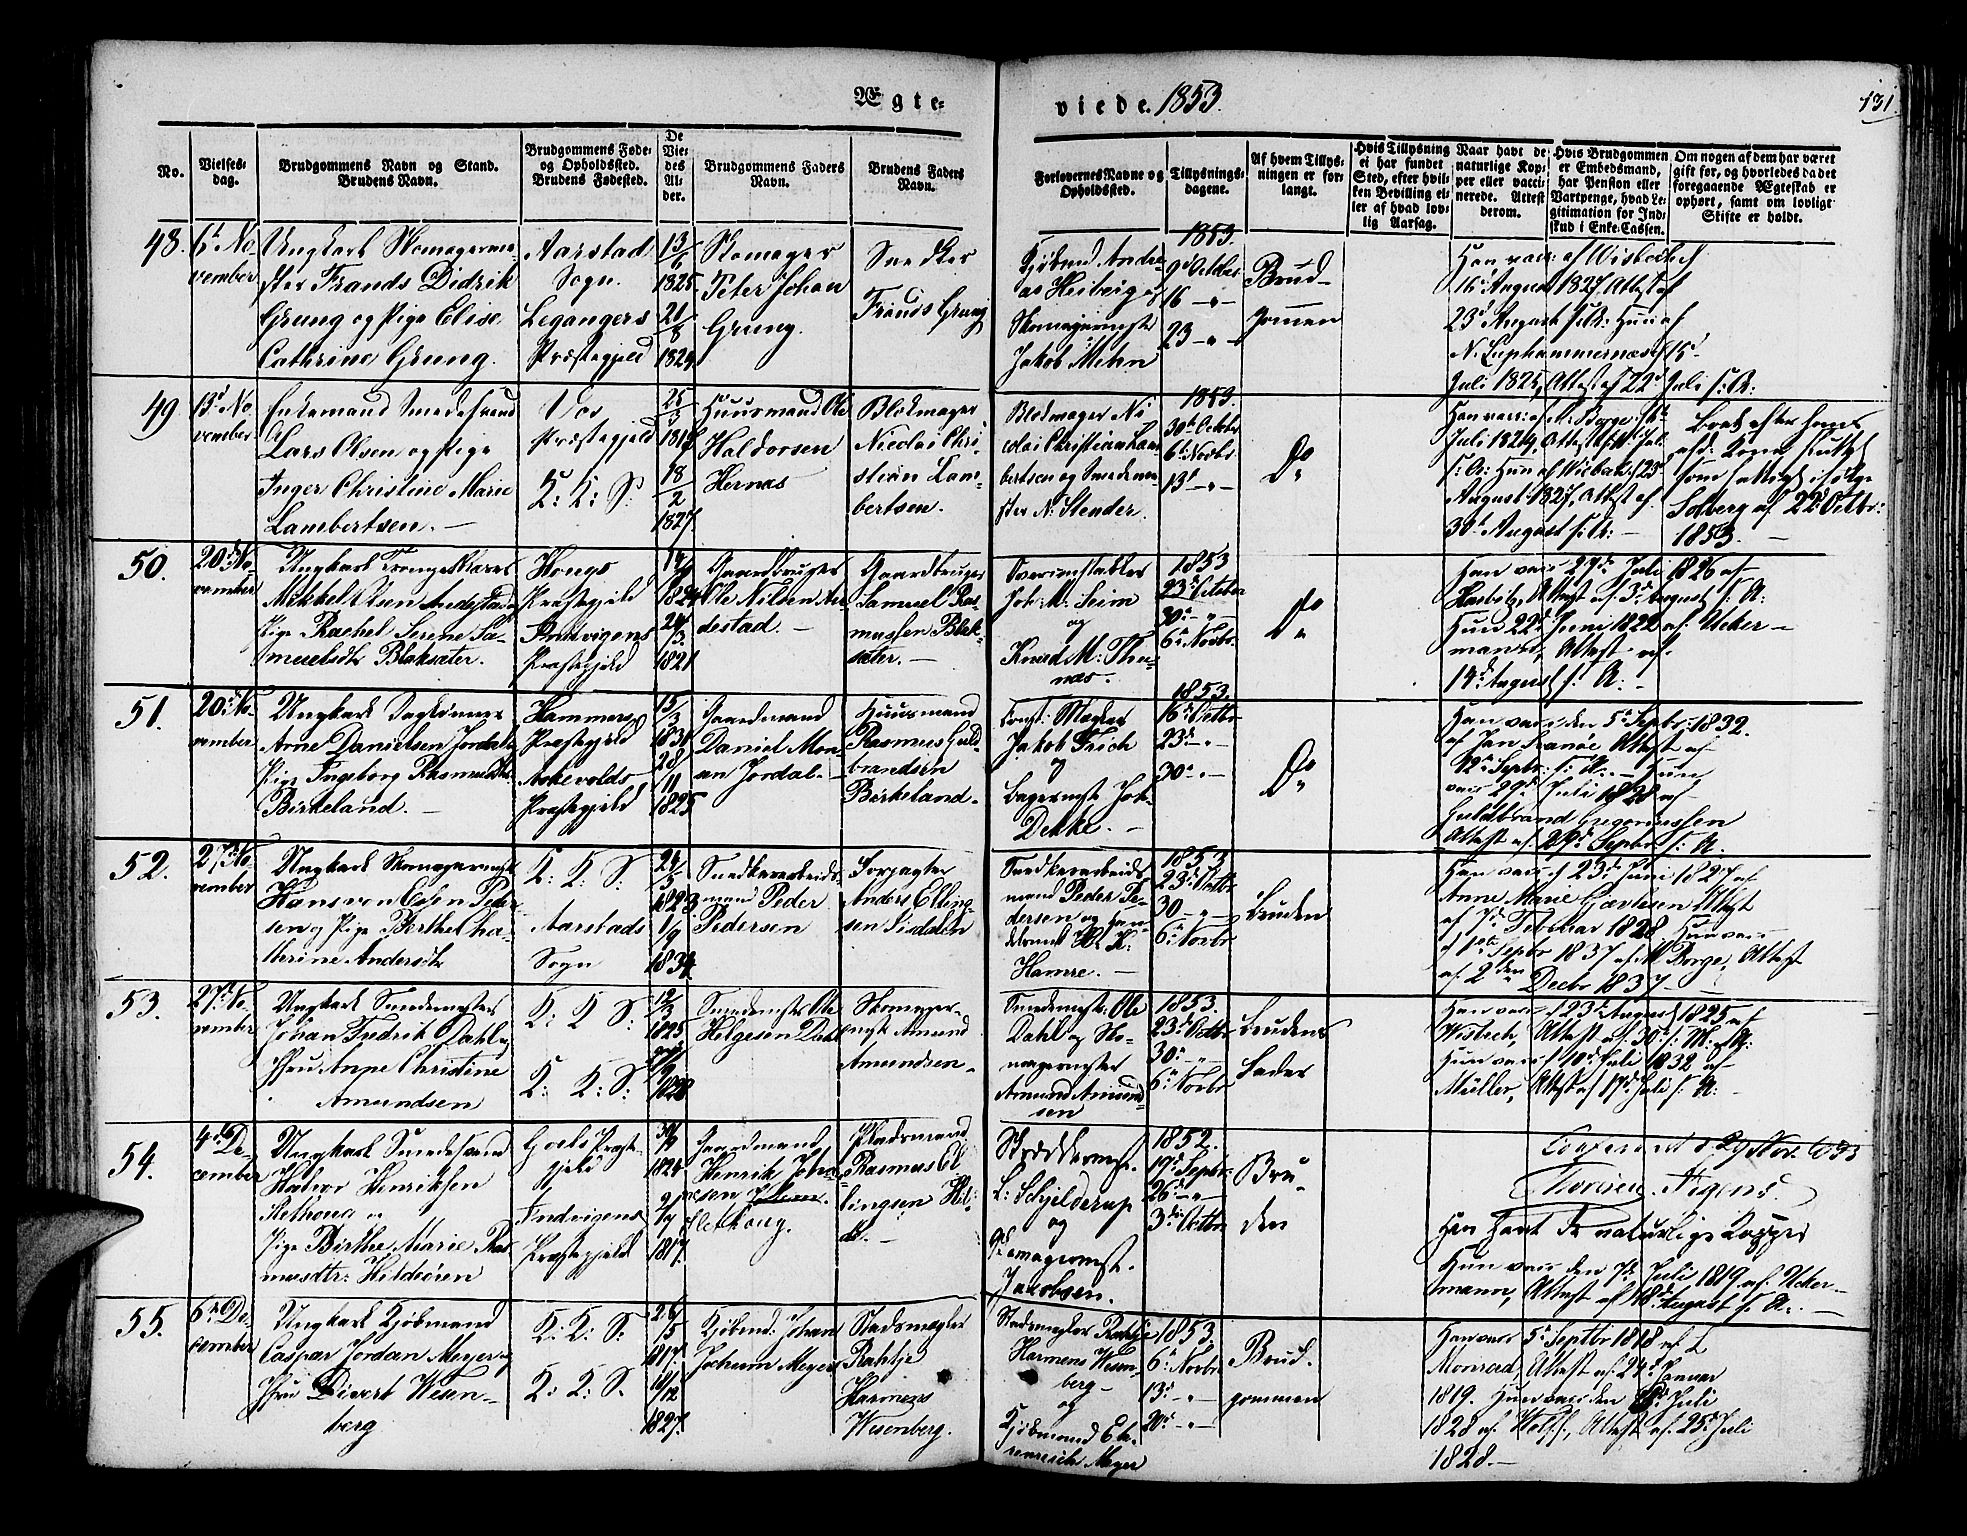 Ægte-
viede. 1853.
131
No.
Vielses-
dag.
Brudgommens Navn og Stand.
Brudens Navn.
Brudgommens Føde-
og Opholdssted.
Brudens Fødested.
De
Vie-
des
Al-
der.
Brudgommens Faders
Navn.
Brudens Faders
Navn.
Forlovernes Navne og
Opholdssted.
Tillysnings-
dagene.
Af hvem Tillys-
ningen er for-
langt.
Hvis Tillysning
ei har fundet
Sted, efter hvil-
ken Bevilling el-
ler af hvad lov-
lig Aarsag.
Naar havt de
naturlige Kop-
per eller vacci-
nerede. Attest
derom.
Hvis Brudgommen
er Embedsmand,
har Pension eller
Vartpenge, hvad Le-
gitimation for Ind-
skud i Enke-Cassen.
Om nogen af dem har været
gift før, og hvorledes da det
foregaaende Ægteskab er
ophørt, samt om lovligt
Skifte er holdt.
48.
6t No
vember
Ungkarl Skomagerme-
ster Frands Didrik
Grung og Pige Elise
Cathrine Grung.
Aarstad
Sogn.
Legangers
Præstegjeld
13/6
1825
21/8
1824
Skomager
Peter Johan
Grung.
Snedker
Frands Grung
Kjøbmd Andre-
as Heiberg og
Skomagermester
Jakob Mehn
1853.
9d October
16 — " —
23 — " —
Brud-
gommen
Han vacc: af Wisbech
16d August 1827, Attest af
23d August s. A: Hun af
N. Luphammernæs 15d
Juli 1825, Attest af 22d Juli s. A:
49
13d No
vember
Enkemand Smedesvend
Lars Olsen og Pige
Inger Christine Marie
Lambertsen. —
Vos
Præstegjeld
K: K: S:
25/3
18/2
1827
Huusmand Ole
Haldorsen
Hernæs
Blokmager
Nicolai Chri-
stian Lam-
bertsen.
Blokmager Ni
colai Christian Lam-
bertsen og Smedeme-
ster N: Stender.
1853.
30d October
6d Novbr
13d — " —
Do
"
August 1827, Attest af
30d August s. A: —
afd: Kone
Solberg af 22d Octbr:
1853. —
50.
20d No-
vember
Ungkarl
Mikkel Olsen Andestad og
Pige Rachel Serene Sa-
muelsdtr Blaksæter.
Hougs
Præstegjeld
Indvigens
Præstegjeld
1824
24/3
1821
Gaardbruger
Ole Nilsen An-
destad. —
Gaardbruger
Samuel Ras-
mussen Blak-
sæter. —
Joh: M: Seim
og
Knud M: Thu-
næs.
1853
23d October
30d — " —
6d Novbr.
Do
"
Han vacc 27d Juli 1826 af
Attest af 3d August s. A:
Hun 22d Juni 1822 af Ucker-
mann, Attest af
14d August s. A: —
51.
20d No-
vember
Ungkarl
Arne Danielsen Jordal og
Pige Ingeborg Rasmusdtr
Birkeland. —
Hammers
Præstegjeld
Askevolds
Præstegjeld
15/3
1831
28/11
1825
Gaardmand
Daniel Mon-
sen Jordal. —
Huusmand
Rasmus Guld-
brandsen
Birkeland.
Const: Mægler
Jakob Frich
og
Bagermestr Joh.
Dekke. —
1853.
16d Octbr
23d — " —
30d — " —
Do
"
Han vacc den 5d Septbr: 1832.
Attest af
12d Septbr: s. A: — Hun
vacc 29d Juli 1828 af
Guldbrand Gregoriussen
Attest af 29d Septbr s. A:
52.
27d No-
vember
Ungkarl Skomagermestr
Hans von Essen Peder-
sen og Pige Berthe Cha-
therine Andersdtr
K: K: S:
Aarstads
Sogn
24/5
1823
1/9
1834
Snedkerarbeids-
mand Peder
Pedersen
Forpagter
Anders Elling-
sen
Snedkerarbeids
mand Peder Pe-
dersen og
K.
Hamre. —
1853
23d Octbr
30 — " —
6d Novbr
Bruden
Han vacc 23d Juni 1827 af
Anne Marie Attest
af 7d Februar 1828. Hun vacc
1ste Septbr 1837 af M. Borge, Attest
af 2den Decbr 1837.
53.
27d No-
vember
Ungkarl Smedemester
Johan Fredrik Dahl og
Jfru Anne Christine
Amundsen
K: K: S:
K: K: S:
12/3
1825
1828
Smedemester Ole
Helgesen Dahl
Skomager-
mstr Amund
Amundsen.
Smedemestr: Ole
Dahl og Sko-
magermester
Amund Amund-
sen
1853.
23d Octbr
30d — " —
6d Novbr
Brudens
Fader
Han vacc 23d August 1825 af
Wisbech, Attest af 30d s: M: og A:
Hun vacc 10d Juli 1832 af
Müller, Attest af 17d Juli s. A: —
54.
4d De-
cember
Ungkarl Smedesvend
Halvor Henriksen
og
Pige Birthe Marie Ras-
musdtr: Hildeöen
Præste-
gjeld
Indvigens
Præstegjeld
30/9
1824
1817.
Gaardmand
Henrik Joha-
nesen
Pladsmand
Rasmus El-
lingsen Hil-
de. —
L: Schjelderup
og
Skomagermestr.
Jakobsen.
1852.
19d Septbr:
26d — " —
3die Octbr
Bru-
den
Copuleret d 29 Nov. 1853
Han havt de naturlige Kopper
Hun vacc den 7d Juli 1819 af Ucker-
mann, Attest af 18d August s. A: —
55.
6d De-
cember
Ungkarl Kjøbmand
Caspar Jordan Meyer og
Jfru Divert Wesen-
berg
K: K: S:
K: K: S.
26/5
1817.
16/12
1827.
Kjøbmd: Johan
Jochum Meyer
Stadsmægler
Rahtje
Harmens
Wesenberg.
Stadsmægler Rahtje
Harmens Wesen-
berg —
og
Kjøbmand Eh-
renreich Meyer
1853.
6d Novbr
13d — " —
20d — " —
Brud-
gommen
Han vacc 5d Septbr 1818 af L
Monrad, Attest af 24d Januar
1819. Hun vacc den Juli
1828 af Wolff, Attest af 25d Juli
1828. —